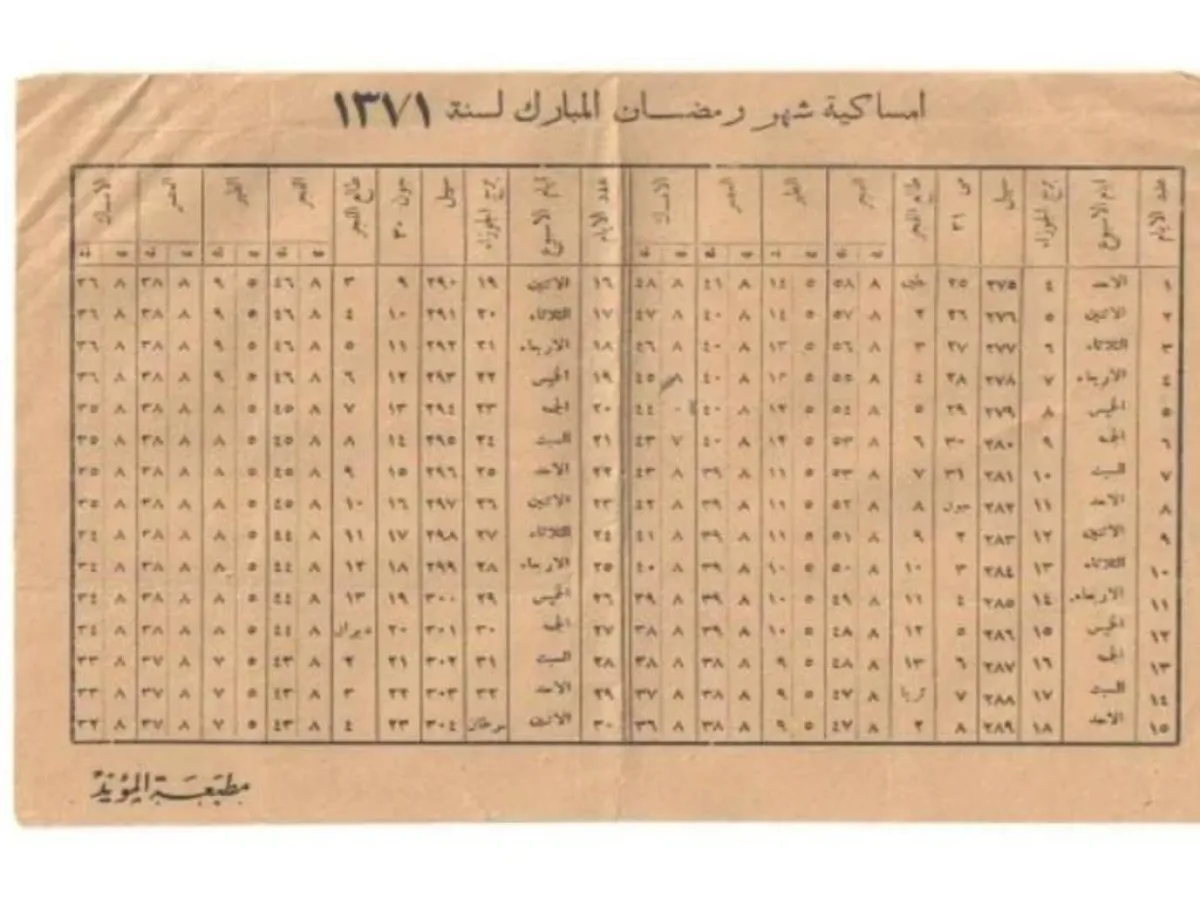 امساكية شهر رمضان المبارك لسنة ١٣٧١
عدد الايام ايام الاسبوع برج الجوزاء سهيل مى ٣١ طالع الفجر الفجر الظهر العصر الامساك عدد الايام ايام الاسبوع برج الجوزاء سهيل جون ٣٠ طالع الفجر الفجر الظهر العصر الامساك
١ الاحد ٤ ٢٧٥ ٢٥ ٨ ٥٨ ٥ ١٤ ٨ ٤١ ٨ ٤٨ ١٦ الاثنين ١٩ ٢٩٠ ٩ ٣ ٨ ٤٦ ٥ ٩ ٨ ٣٨ ٨ ٣٦
٢ الاثنين ٥ ٢٧٦ ٢٦ ٢ ٨ ٥٧ ٥ ١٤ ٨ ٤٠ ٨ ٤٧ ١٧ الثلاثاء ٢٠ ٢٩١ ١٠ ٤ ٨ ٤٦ ٥ ٩ ٨ ٣٨ ٨ ٣٦
٣ الثلاثاء ٦ ٢٧٧ ٢٧ ٣ ٨ ٥٦ ٥ ١٣ ٨ ٤٠ ٨ ٤٦ ١٨ الاربعاء ٢١ ٢٩٢ ١١ ٥ ٨ ٤٦ ٥ ٩ ٨ ٣٨ ٨ ٣٦
٤ الاربعاء ٧ ٢٧٨ ٢٨ ٤ ٨ ٥٥ ٥ ١٣ ٨ ٤٠ ٨ ٤٥ ١٩ الخميس ٢٢ ٢٩٣ ١٢ ٦ ٨ ٤٦ ٥ ٩ ٨ ٣٨ ٨ ٣٦
٥ الخميس ٨ ٢٧٩ ٢٩ ٥ ٨ ٥٤ ٥ ١٢ ٨ ٤٠ ٤٤ ٢٠ الجمعة ٢٣ ٢٩٤ ١٣ ٧ ٨ ٤٥ ٥ ٨ ٨ ٣٨ ٨ ٣٥
٦ الجمعة ٩ ٢٨٠ ٣٠ ٦ ٨ ٥٣ ٥ ١٢ ٨ ٤٠ ٧ ٤٣ ٢١ السبت ٢٤ ٢٩٥ ١٤ ٨ ٨ ٤٥ ٥ ٨ ٨ ٣٨ ٨ ٣٥
٧ السبت ١٠ ٢٨١ ٣١ ٧ ٨ ٥٣ ٥ ١١ ٨ ٣٩ ٨ ٤٣ ٢٢ الاحد ٢٥ ٢٩٦ ١٥ ٩ ٨ ٤٥ ٥ ٨ ٨ ٣٨ ٨ ٣٥
٨ الاحد ١١ ٢٨٢ جون ٨ ٨ ٥٢ ٥ ١١ ٨ ٣٩ ٨ ٤٢ ٢٣ الاثنين ٢٦ ٢٩٧ ١٦ ١٠ ٨ ٤٥ ٥ ٨ ٨ ٣٨ ٨ ٣٥
٩ الاثنين ١٢ ٢٨٣ ٢ ٩ ٨ ٥١ ٥ ١١ ٨ ٣٩ ٨ ٤١ ٢٤ الثلاثاء ٢٧ ٢٩٨ ١٧ ١١ ٨ ٤٤ ٥ ٨ ٨ ٣٨ ٨ ٣٤
١٠ الثلاثاء ١٣ ٢٨٤ ٣ ١٠ ٨ ٥٠ ٥ ١٠ ٨ ٣٩ ٨ ٤٠ ٢٥ الاربعاء ٢٨ ٢٩٩ ١٨ ١٢ ٨ ٤٤ ٥ ٨ ٨ ٣٨ ٨ ٣٤
١١ الاربعاء ١٤ ٢٨٥ ٤ ١١ ٨ ٤٩ ٥ ١٠ ٨ ٣٩ ٨ ٣٩ ٢٦ الخميس ٢٩ ٣٠٠ ١٩ ١٣ ٨ ٤٤ ٥ ٨ ٨ ٣٨ ٨ ٣٤
١٢ الخميس ١٥ ٢٨٦ ٥ ١٢ ٨ ٤٨ ٥ ١٠ ٨ ٣٩ ٨ ٣٨ ٢٧ الجمعة ٣٠ ٣٠١ ٢٠ دبران ٨ ٤٤ ٥ ٨ ٨ ٣٨ ٨ ٣٤
١٣ الجمعة ١٦ ٢٨٧ ٦ ١٣ ٨ ٤٨ ٥ ٩ ٨ ٣٨ ٨ ٣٨ ٢٨ السبت ٣١ ٣٠٢ ٢١ ٢ ٨ ٤٣ ٥ ٧ ٨ ٣٧ ٨ ٣٣
١٤ السبت ١٧ ٢٨٨ ٧ ثريا ٨ ٤٧ ٥ ٩ ٨ ٣٨ ٨ ٣٧ ٢٩ الاحد ٣٢ ٣٠٣ ٢٢ ٣ ٨ ٤٣ ٥ ٧ ٨ ٣٧ ٨ ٣٣
١٥ الاحد ١٨ ٢٨٩ ٨ ٢ ٨ ٤٧ ٥ ٩ ٨ ٣٨ ٨ ٣٦ ٣٠ الاثنين سرطان ٣٠٤ ٢٣ ٤ ٨ ٤٣ ٥ ٧ ٨ ٣٧ ٨ ٣٢
مطبعة المؤيد